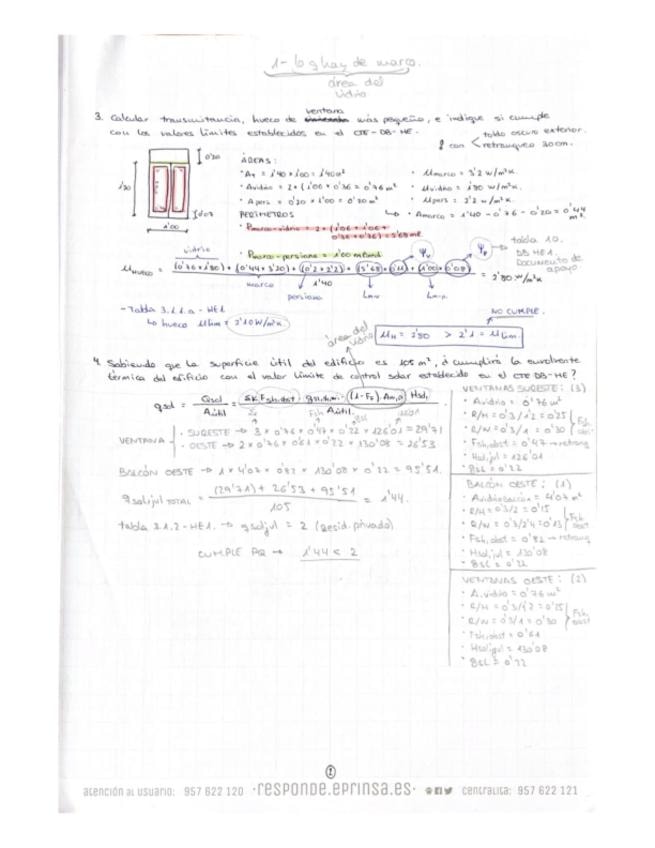 1 - lo q hay de marco.
área del
vidrio
ventana
3. Calcular transmitancia, hueco de más pequeño, e indique si cumple
con los valores límites establecidos en el CTE-DB-HE.
con toldo oscuro exterior.
retranqueo 30cm.
0'20
1'20
0'07
1'00
ÁREAS:
· AT = 1'40 x 1'00 = 1'40m²
· Avidrio = 2 x (1'06 x 0'36 = 0'76 m²
· A pers = 0'20 x 1'00 = 0'20 m²
· Umarco = 3'2 W/m²K
· Uvidrio = 1'80 W/m²K.
· Upers = 2'2 W/m²K
↳ · Amarco = 1'40 - 0'76 - 0'20 = 0'44 m².
PERÍMETROS
· Pmarco-vidrio = 2 x (1'06 + 1'06 +
0'36 + 0'36) = 5'68 ml
· Pmarco-persiana = 1'00 ml
tabla 10.
DB HE1.
Documento de
apoyo.
vidrio
UHUECO = (0'76 x 1'80) + (0'44 x 3'20) + (0'2 x 2'2) + (5'68 x 0'11) + (1'00 x 0'08) = 2'80 W/m²K
marco
1'40
persiana
Lm-v
Lm-p
- Tabla 3.1.1.a - HE1
↳ hueco Ulim = 2'10 W/m²K
NO CUMPLE.
área del
vidrio
UH = 2'80 > 2'1 = Ulim.
4. Sabiendo que la superficie útil del edificio es 105 m², ¿cumplirá la envolvente
térmica del edificio con el valor límite de control solar establecido en el CTE DB-HE?
qsol = Qsol / Aútil = ΣK Fsh,obst · gsh,wi · (1 - FF) · Aw,p · Hsol / Aútil.
VENTANA
· SURESTE → 3 x 0'76 x 0'47 x 0'22 x 126'01 = 29'71
· OESTE → 2 x 0'76 x 0'61 x 0'22 x 130'08 = 26'53
BALCÓN OESTE → 1 x 4'07 x 0'82 x 130'08 x 0'22 = 95'51.
qsol,jul TOTAL = (29'71) + 26'53 + 95'51 / 105 = 1'44.
tabla 3.1.2 - HE1. → qsol,jul = 2 (resid. privado)
CUMPLE PQ → 1'44 < 2
VENTANAS SURESTE: (3)
· Avidrio = 0'76 m²
· R/H = 0'3/1'2 = 0'25
· R/W = 0'3/1 = 0'30
Fsh, obst
· Fsh,obst = 0'47 → retranq
· Hsol,jul = 126'01
· gsl = 0'22
BALCÓN OESTE: (1)
· Avidriobalcón = 4'07 m²
· R/H = 0'3/2 = 0'15
· R/W = 0'3/2'4 = 0'13
Fsh obst
· Fsh,obst = 0'82 → retranq
· Hsol,jul = 130'08
· gsl = 0'22
VENTANAS OESTE: (2)
· A.vidrio = 0'76 m²
· R/H = 0'3/1'2 = 0'25
· R/W = 0'3/1 = 0'30
Fsh, obst
· Fsh,obst = 0'61
· Hsol,jul = 130'08
· gsl = 0'22
atención al usuario: 957 622 120 ·responde.eprinsa.es· centralita: 957 622 121